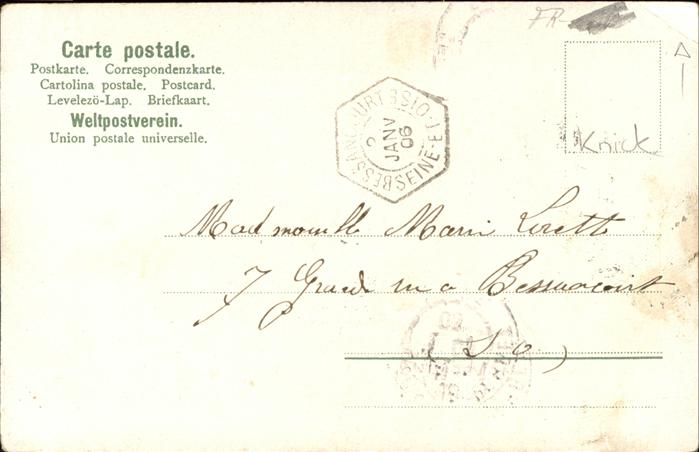 FR-
Carte postale.
Postkarte. Correspondenzkarte.
Cartolina postale. Postcard.
Levelezö-Lap. Briefkaart.
Weltpostverein.
Union postale universelle.
BESSANCOURT
SEINE-ET-OISE
JANV
06
Knick
Mademoiselle Marie
7 Grande Bessancourt
(S O)